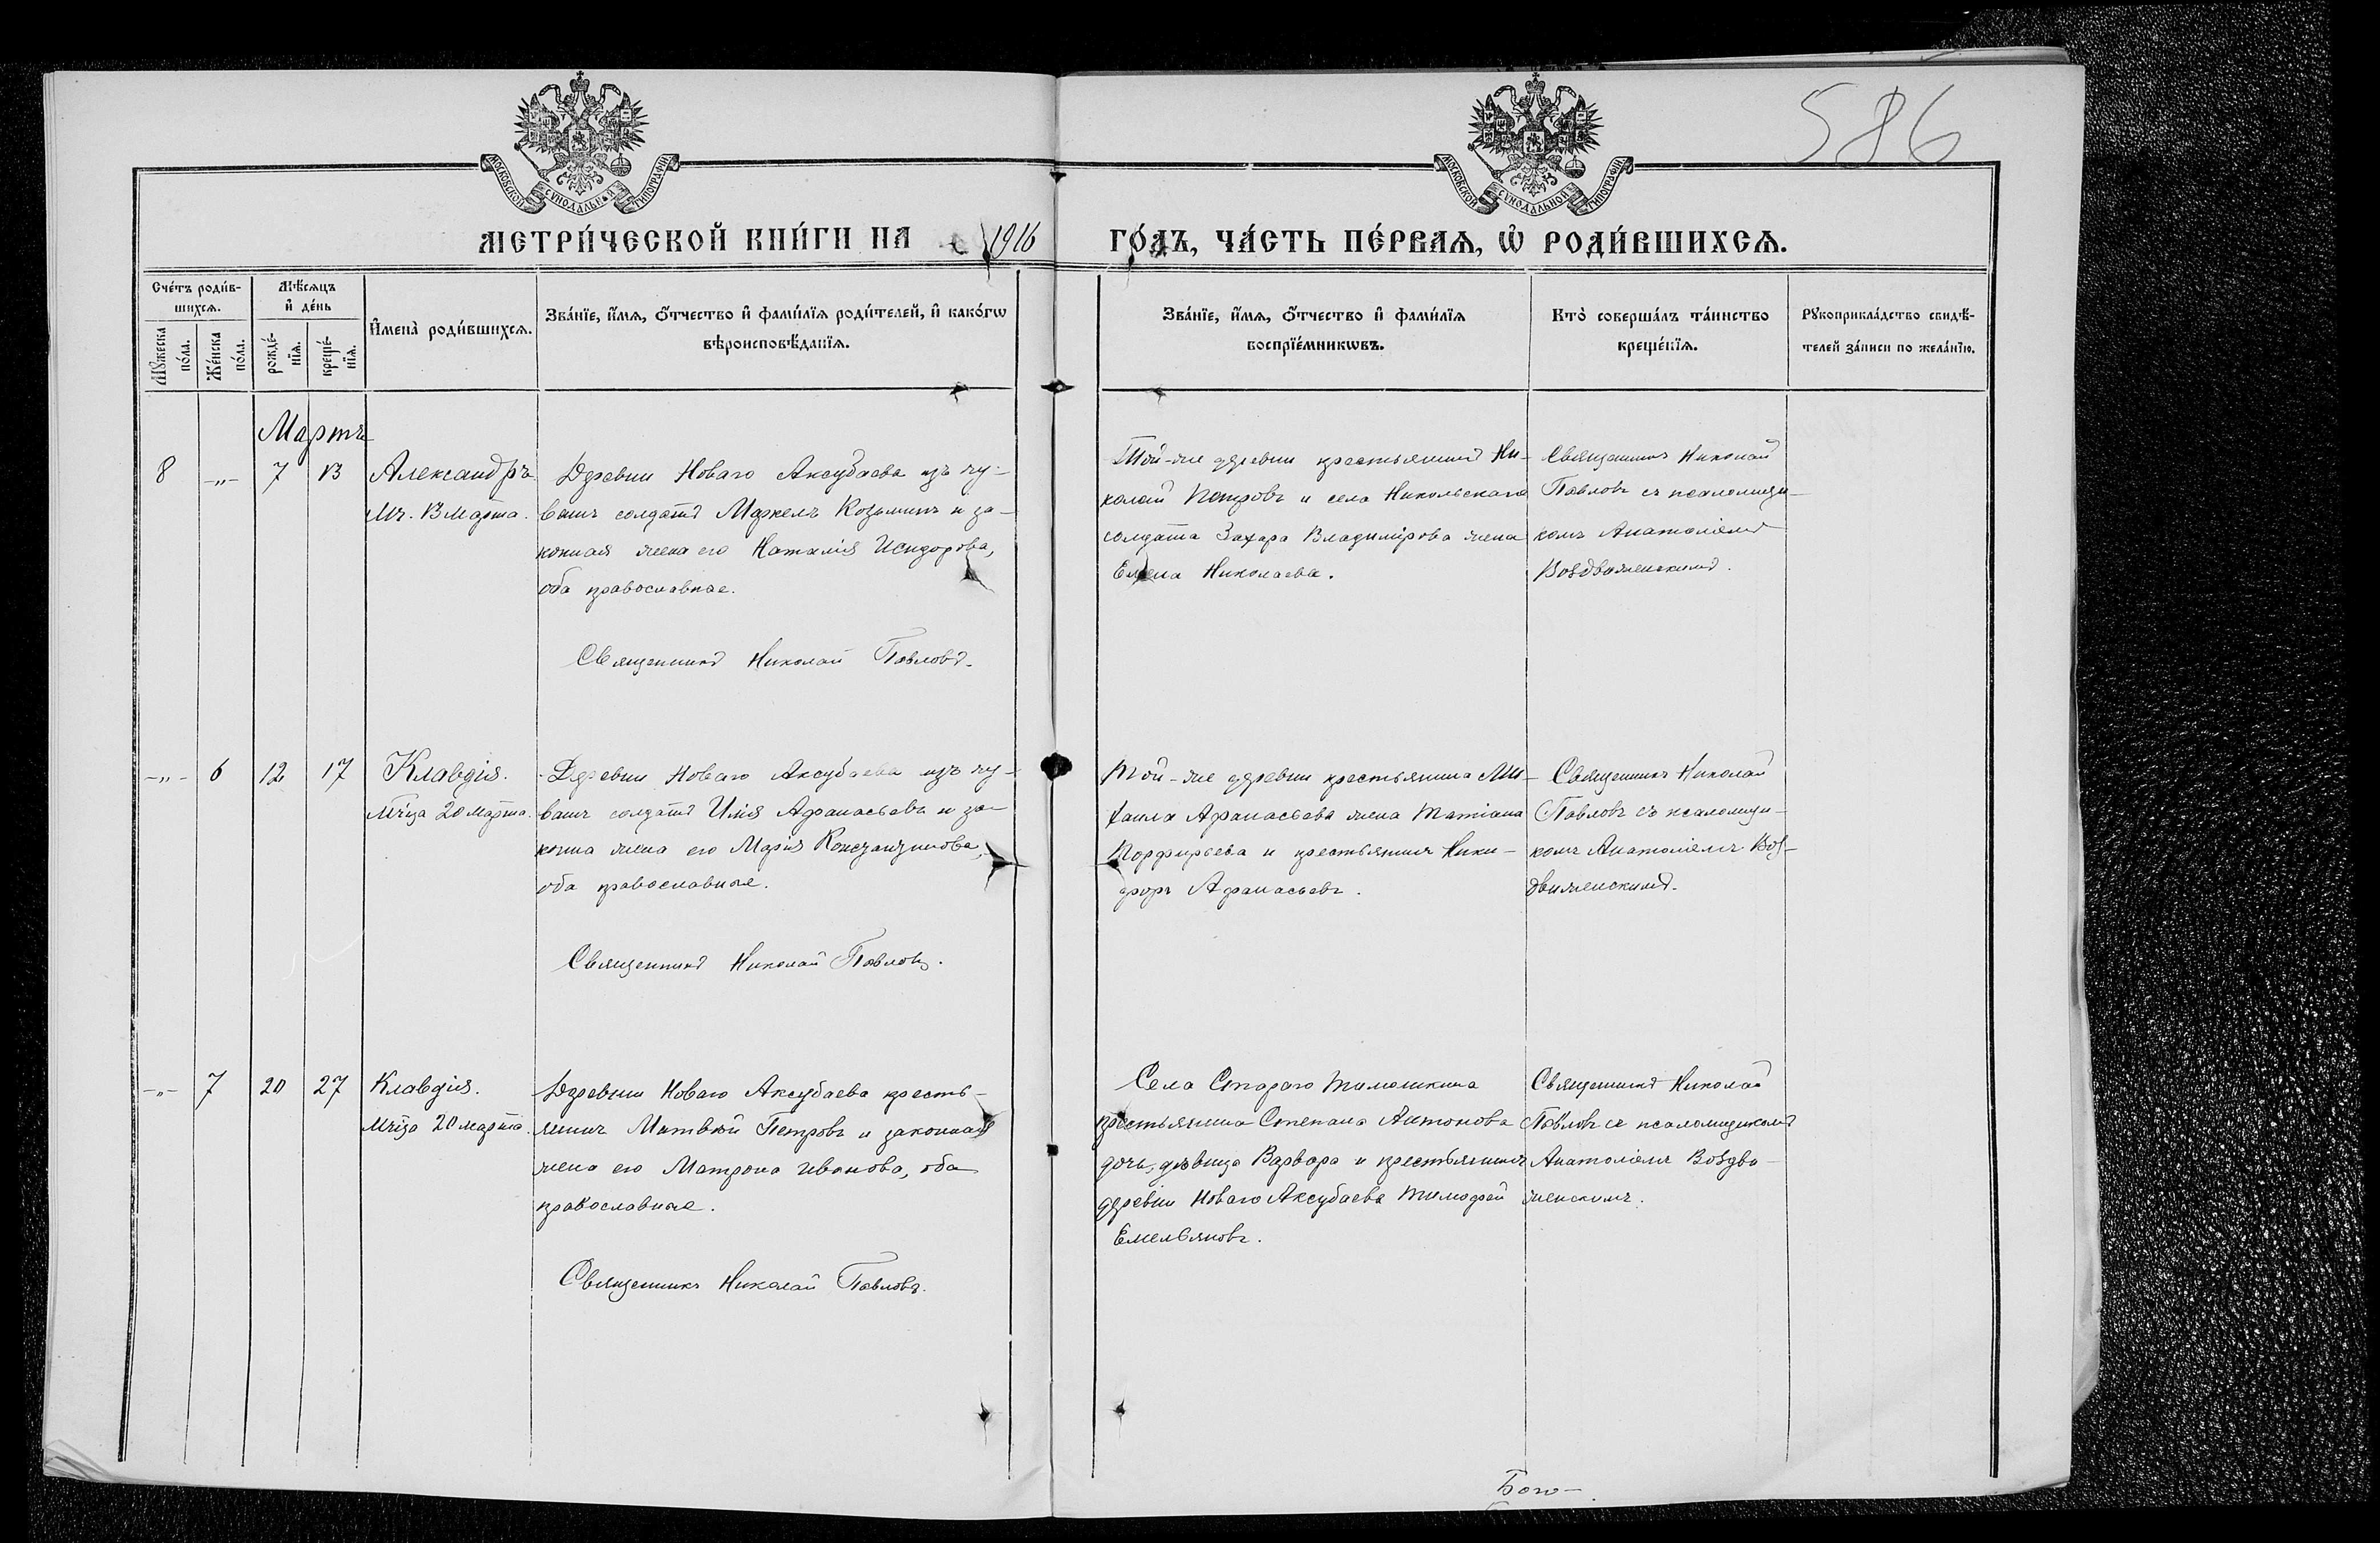 586
МОСКОВСКОЙ СѴНОДАЛЬНОЙ ТИПОГРАФІИ
МОСКОВСКОЙ СѴНОДАЛЬНОЙ ТИПОГРАФІИ
МЕТРИ́ЧЕСКОЙ КНИ́ГИ НА 1916 ГО́ДЪ, ЧА́СТЬ ПЕ́РВАѦ, Ѡ҆ РОДИ́ВШИХСѦ.
Сче́тъ роди́в-
шихсѧ.
Мꙋ́жеска по́ла.
Же́нска по́ла.
Мѣ́сѧцъ
и҆ де́нь
рожде́-
нїѧ.
креще́-
нїѧ.
И҆мена̀ роди́вшихсѧ.
Зва́нїе, и҆́мѧ, ѻ҆́тчество и҆ фами́лїѧ роди́телей, и҆ како́гѡ
вѣроисповѣ́данїѧ.
Зва́нїе, и҆́мѧ, ѻ҆́тчество и҆ фами́лїѧ
воспрїе́мникѡвъ.
Кто̀ соверша́лъ та́инство
креще́нїѧ.
Рꙋкоприкла́дство свидѣ́-
телей за́писи по жела́нїю.
Мартъ
8 -„- 7 13 Александръ
Мч. 13 марта.
Деревни Новаго Аксубаева изъ чу-
вашъ солдатъ Маркелъ Козьминъ и за-
конная жена его Наталія Исидорова,
оба православные.
Священникъ Николай Павловъ.
Той-же деревни крестьянинъ Ни-
колай Петровъ и села Никольскаго
солдата Захара Владимірова жена
Елена Николаева.
Священникъ Николай
Павловъ съ псаломщи-
комъ Анатоліемъ
Воздвиженскимъ.
-„- 6 12 17 Клавдія.
Мч҃ца 20 марта.
Деревни Новаго Аксубаева изъ чу-
вашъ солдатъ Илія Афанасьевъ и за-
конна жена его Марія Константинова,
оба православные.
Священникъ Николай Павловъ.
Той-же деревни крестьянина Ми-
хаила Афанасьева жена Татіана
Порфирьева и крестьянинъ Ники-
форъ Афанасьевъ.
Священникъ Николай
Павловъ съ псаломщи-
комъ Анатоліемъ Воз-
движенскимъ.
-„- 7 20 27 Клавдія.
Мч҃ца 20 марта.
Деревни Новаго Аксубаева кресть-
янинъ Матвѣй Петровъ и законная
жена его Матрона Иванова, оба
православные.
Священникъ Николай Павловъ.
Села Стараго Тимошкина
крестьянина Степана Антонова
дочь, дѣвица Варвара и крестьянинъ
деревни Новаго Аксубаева Тимофей
Емельяновъ.
Священникъ Николай
Павловъ съ псаломщикомъ
Анатоліемъ Воздви-
женскимъ.
Бого-